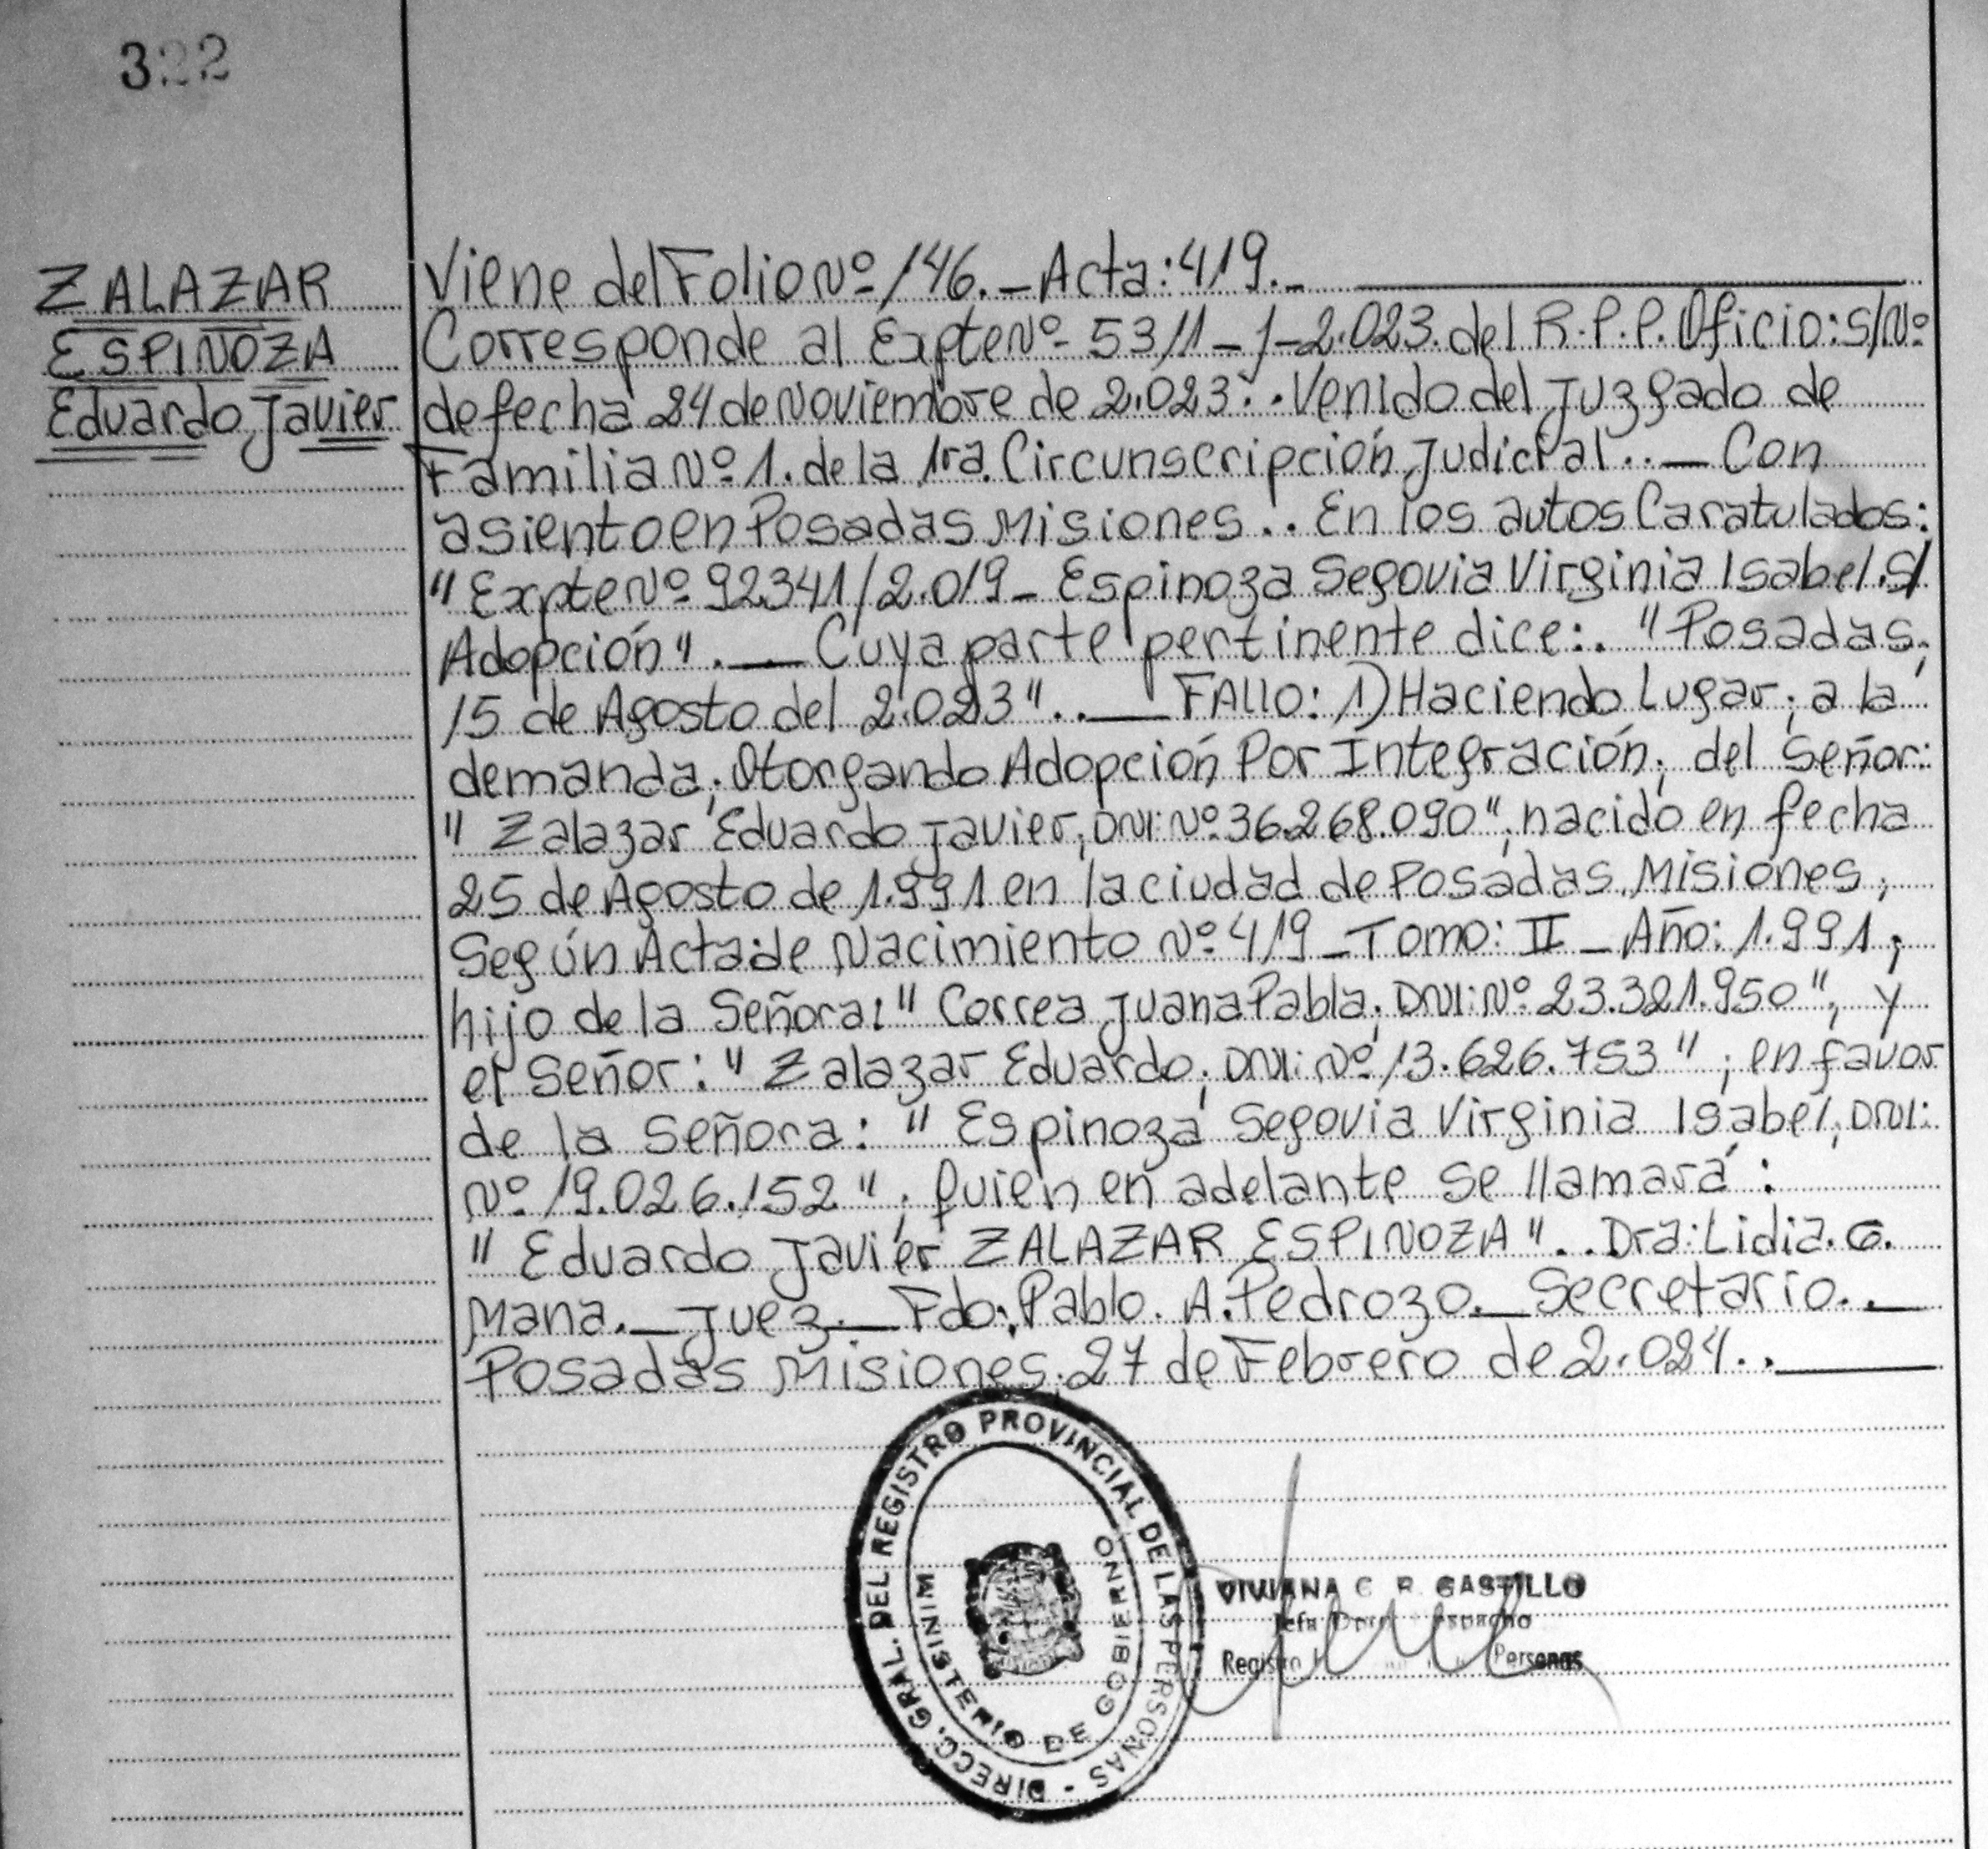 322
ZALAZAR
ESPINOZA
Eduardo Javier
Viene del Folio Nº 146. - Acta: 419. -
Corresponde al Expte Nº 5311 - J - 2.023. del R.P.P. Oficio: S/Nº
de fecha 24 de Noviembre de 2.023.. Venido del Juzgado de
Familia Nº 1. de la 1ra. Circunscripción Judicial.. — Con
asiento en Posadas Misiones.. En los autos Caratulados:
"Expte Nº 92341/2.019 - Espinoza Segovia Virginia Isabel S/
Adopción". — Cuya parte pertinente dice:. "Posadas,
15 de Agosto del 2.023".. — FAllO: 1) Haciendo Lugar; a la
demanda; Otorgando Adopción Por Integración; del Señor:
"Zalazar Eduardo Javier; DNI: Nº 36.268.090"; nacido en fecha
25 de Agosto de 1.991 en la ciudad de Posadas, Misiones;
Según Acta de Nacimiento Nº 419 - Tomo: II - Año: 1.991;
hijo de la Señora: "Correa Juana Pabla; DNI: Nº 23.321.950"; y
el Señor: "Zalazar Eduardo; DNI: Nº 13.626.753"; en favor
de la Señora: "Espinoza Segovia Virginia Isabel; DNI:
Nº 19.026.152"; quien en adelante se llamará:
"Eduardo Javier ZALAZAR ESPINOZA".. Dra: Lidia. G.
Mana. — Juez. — Fdo: Pablo. A. Pedrozo. — Secretario.. —
Posadas Misiones, 27 de Febrero de 2.024.. —
DIRECC. GRAL. DEL REGISTRO PROVINCIAL DE LAS PERSONAS -
MINISTERIO DE GOBIERNO
VIVIANA C. R. CASTILLO
Jefa Despacho
Registro Personas